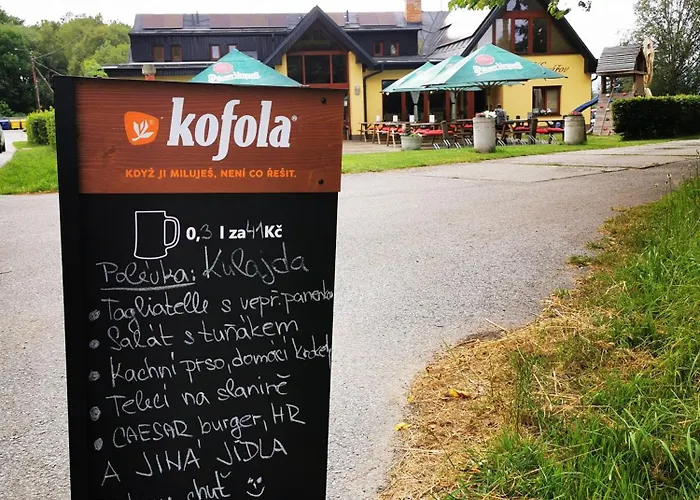 kofola®
KDYŽ JI MILUJEŠ, NENÍ CO ŘEŠIT.
0,3 l za 41 Kč
Polévka: Kulajda
Tagliatelle s vepř. panenkou
Salát s tuňákem
Kachní prso, domácí
Telecí na slanině
CAESAR burger, HR
A JINÁ JÍDLA
chuť